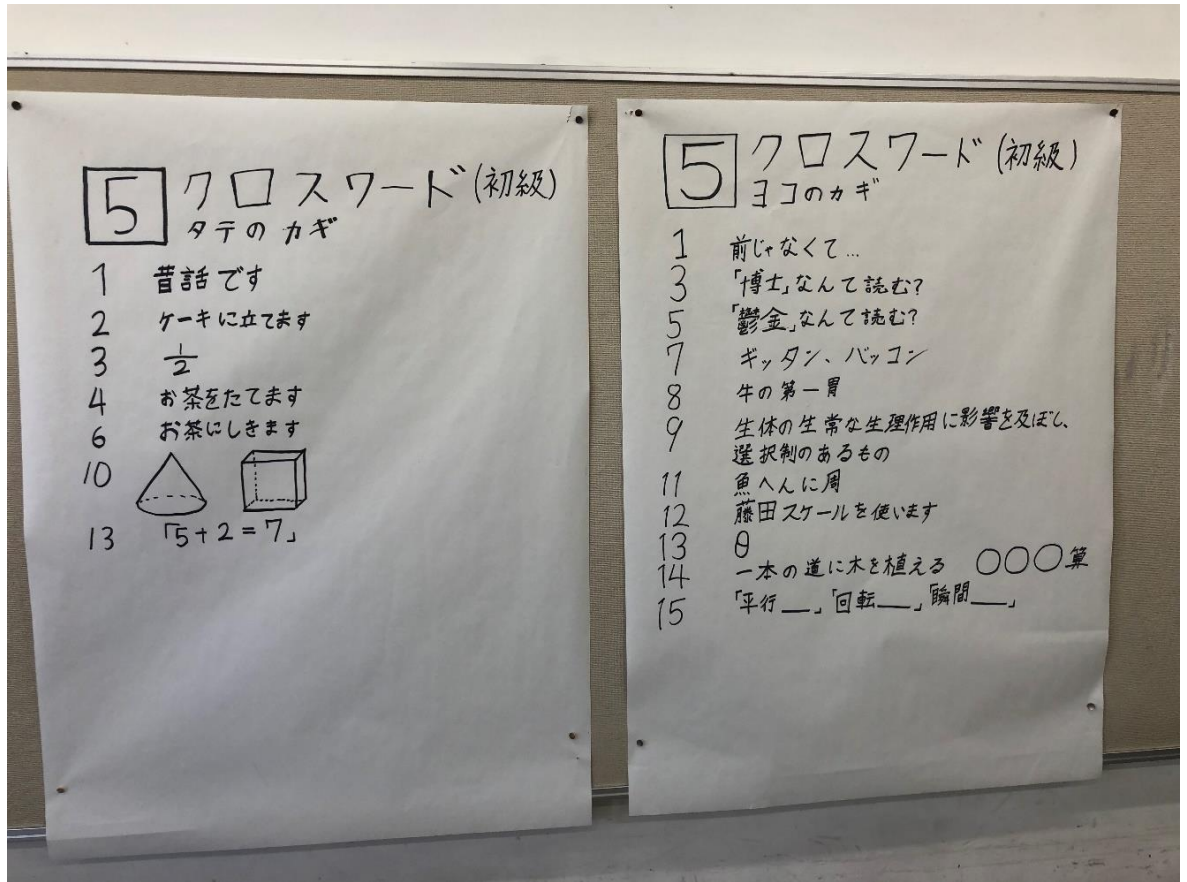 5 クロスワード(初級)
タテのカギ
1 昔話です
2 ケーキに立てます
3 1/2
4 お茶をたてます
6 お茶にしきます
10
13 「5+2=7」
5 クロスワード(初級)
ヨコのカギ
1 前じゃなくて…
3 「博士」なんて読む?
5 「鬱金」なんて読む?
7 ギッタン、バッコン
8 牛の第一胃
9 生体の生常な生理作用に影響を及ぼし、
選択制のあるもの
11 魚へんに周
12 藤田スケールを使います
13 θ
14 一本の道に木を植える ○○○算
15 「平行__」「回転__」「瞬間__」